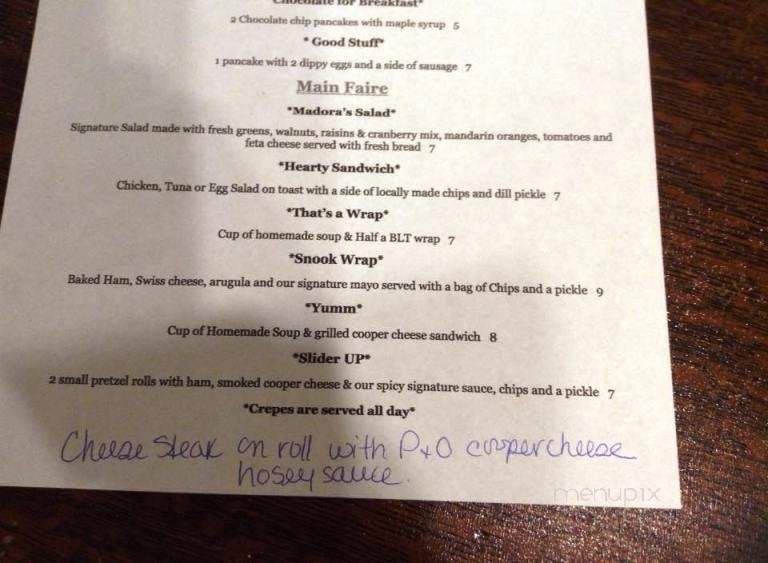 Chocolate for Breakfast*
2 Chocolate chip pancakes with maple syrup 5
* Good Stuff*
1 pancake with 2 dippy eggs and a side of sausage 7
Main Faire
*Madora's Salad*
Signature Salad made with fresh greens, walnuts, raisins & cranberry mix, mandarin oranges, tomatoes and
feta cheese served with fresh bread 7
*Hearty Sandwich*
Chicken, Tuna or Egg Salad on toast with a side of locally made chips and dill pickle 7
*That's a Wrap*
Cup of homemade soup & Half a BLT wrap 7
*Snook Wrap*
Baked Ham, Swiss cheese, arugula and our signature mayo served with a bag of Chips and a pickle 9
*Yumm*
Cup of Homemade Soup & grilled cooper cheese sandwich 8
*Slider UP*
2 small pretzel rolls with ham, smoked cooper cheese & our spicy signature sauce, chips and a pickle 7
*Crepes are served all day*
Cheese Steak on roll with P+O cooper cheese
hosey sauce.
menupix